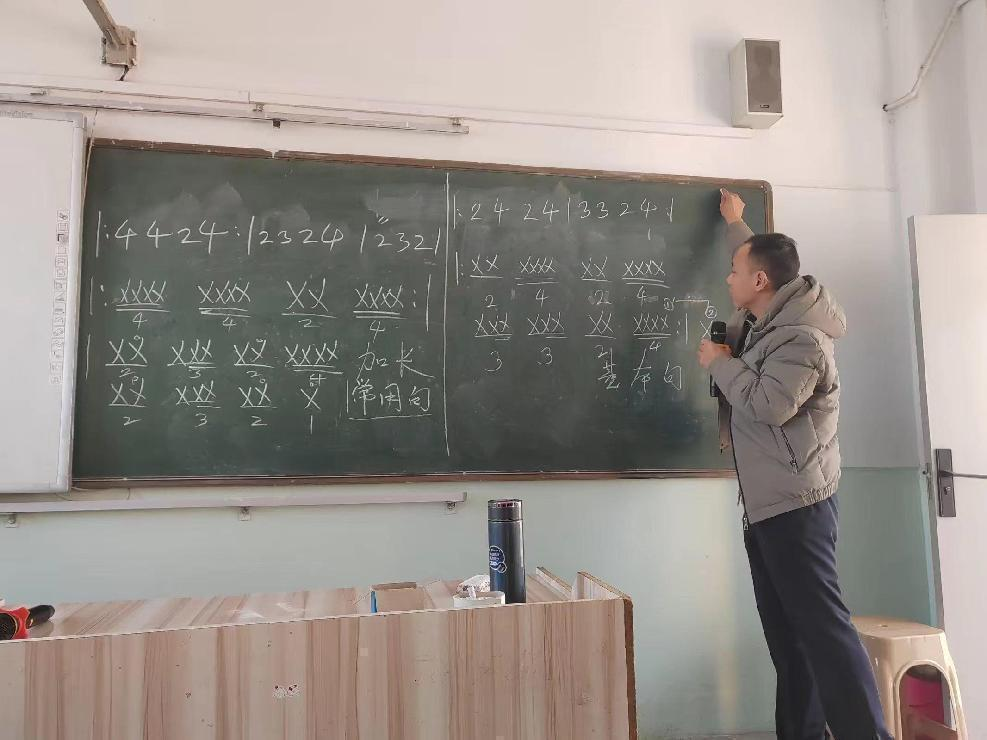 |:4 4 2 4:|2 3 2 4|2 3 2 1|
|:XXXX XXXX XX XXXX:|
4 4 2 4
|XX XXX XX XXXX 加长
2 3 2 4
XX XXX XX X |常用句
2 3 2 1
|:2 4 2 4|3 3 2 4:|
1
|:XX XXXX XX XXXX
2 4 2 4
① ②
XXX XXX XX XXXX:|X
3 3 2 4
基本句